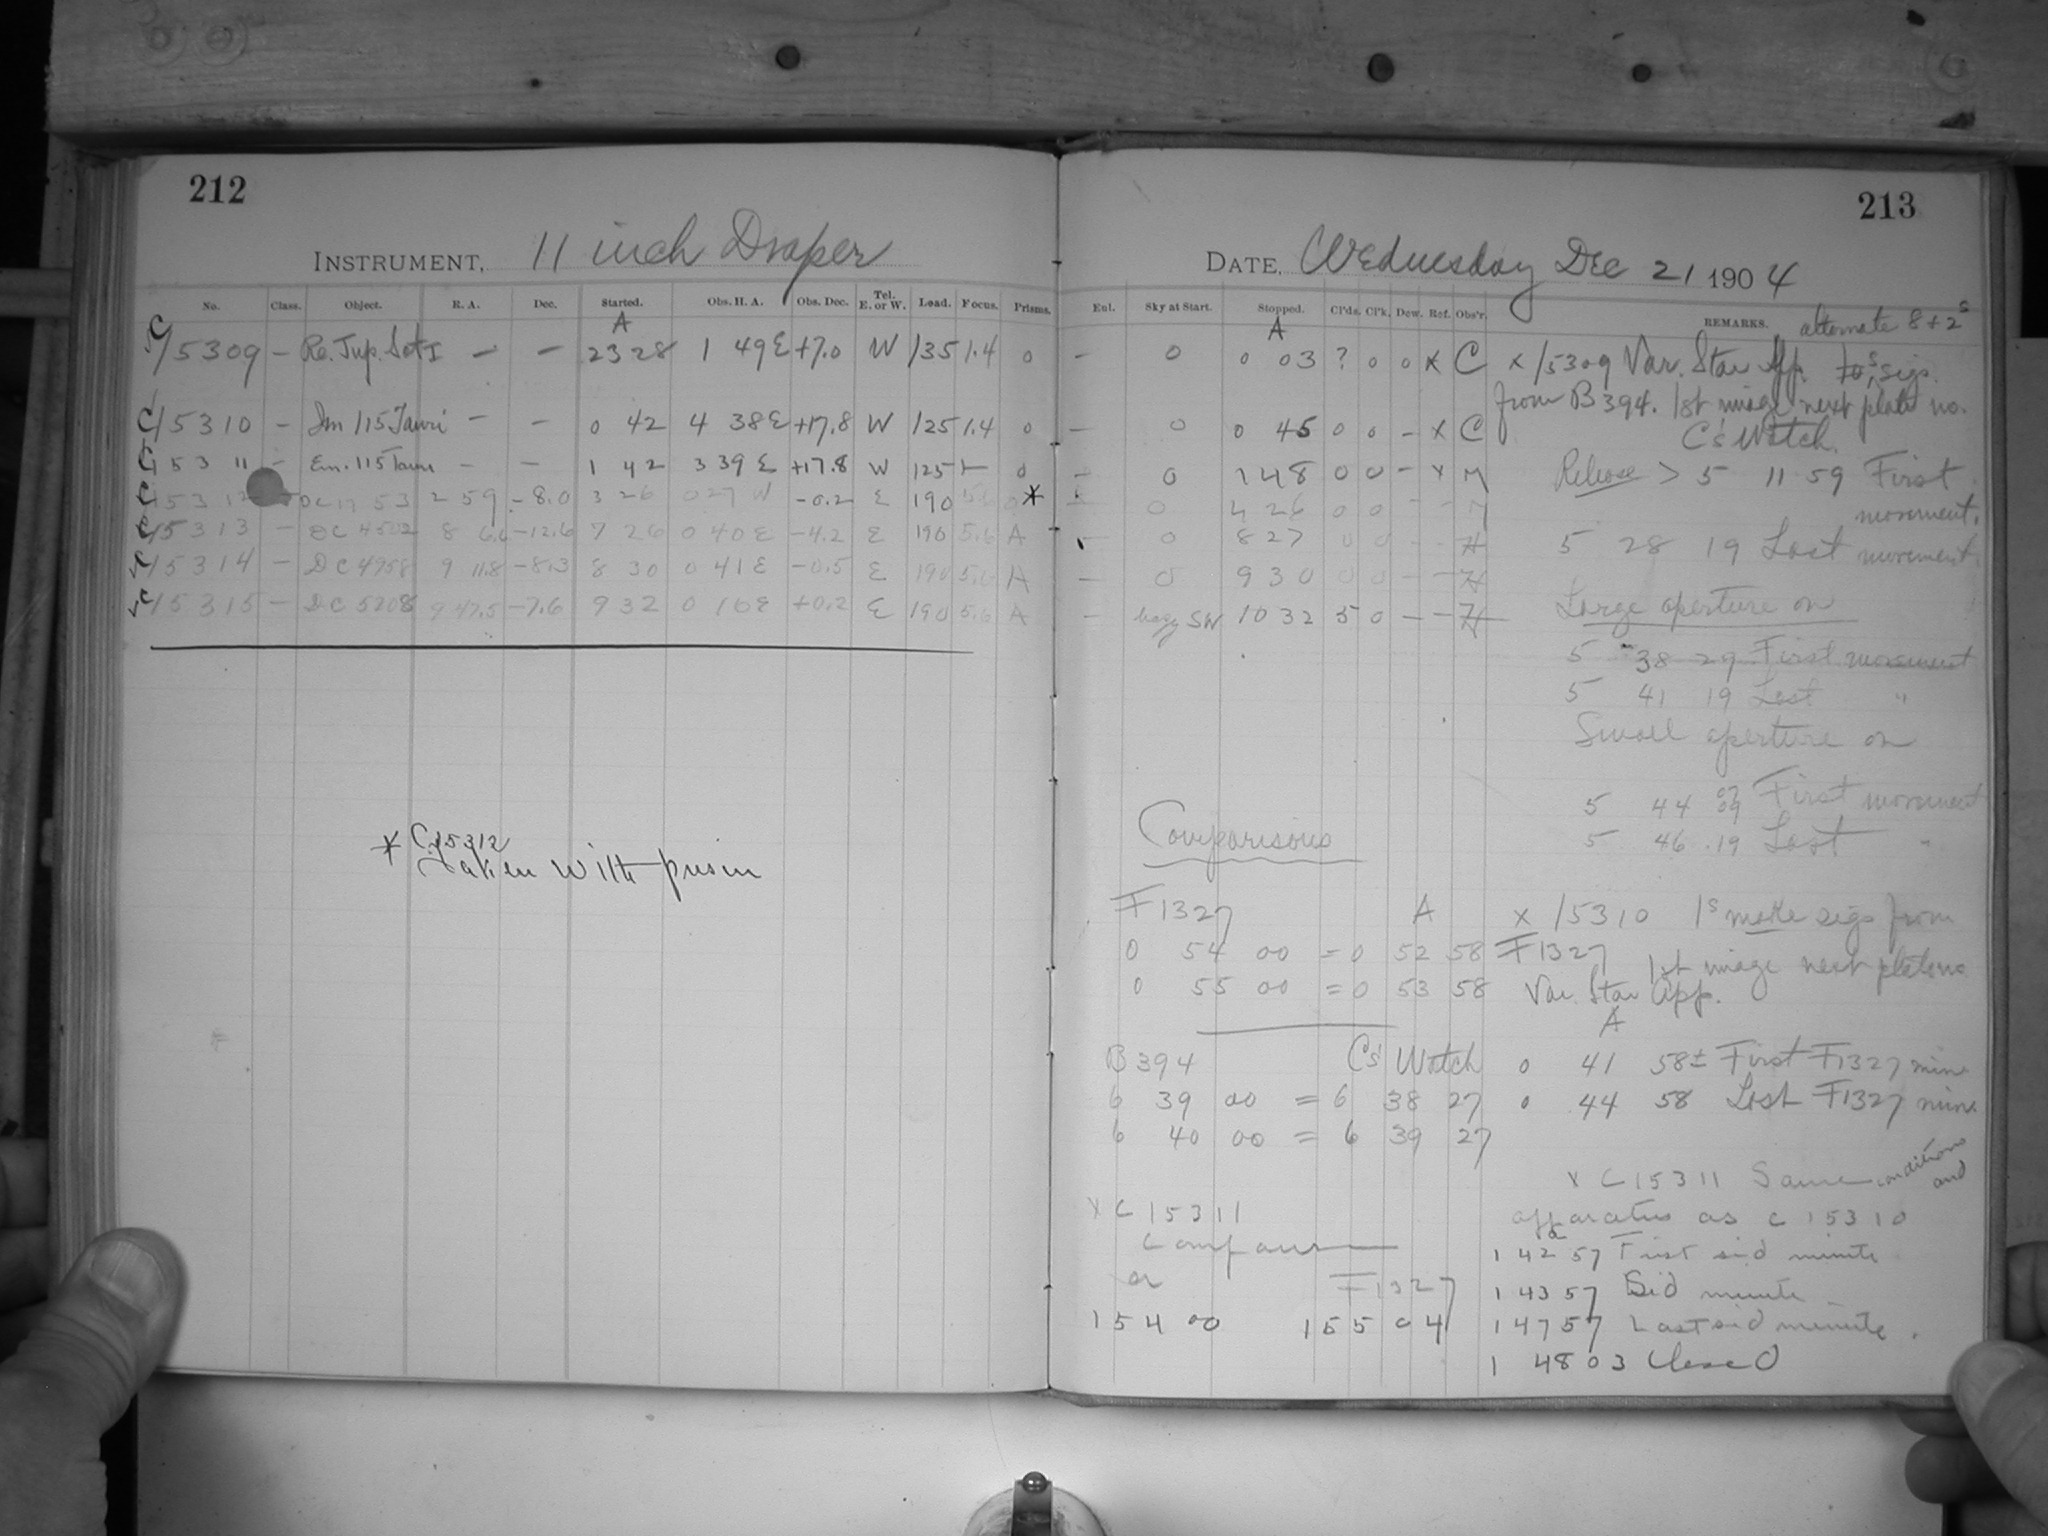 212
INSTRUMENT, 11 inch Draper
No. Class. Object. R. A. Dec. Started. Obs. H. A. Obs. Dec. Tel. E. or W. Load. Focus. Prisms.
A
C 15309 – Re. Jup. Sat I – – 23 28 1 49 E +7.0 W 135 1.4 0
C 15310 – Im 115 Tauri – – 0 42 4 38 E +17.8 W 125 1.4 0
C 15311 – Em. 115 Tauri – – 1 42 3 39 E +17.8 W 125 0
C 15312 DC 17 53 2 59 -8.0 3 26 0 27 W -0.2 E 190 5.6 *
C 15313 – DC 4502 8 6.6 -12.6 7 26 0 40 E -4.2 E 190 5.6 A
C 15314 – DC 4958 9 11.8 -8.3 8 30 0 41 E -0.5 E 190 5.6 A
C 15315 – DC 5208 9 47.5 -7.6 9 32 0 16 E +0.2 E 190 5.6 A
* C 15312
Taken with prism
213
DATE, Wednesday Dec 21 1904
Enl. Sky at Start. Stopped. Cl'ds. Cl'k. Dew. Ref. Obs'r. REMARKS.
alternate 8 + 2s
A
– 0 0 03 ? 0 0 x C x 15309 Var. Star App. 10s sigs.
from B 394. 1st image next plate no.
– 0 0 45 0 0 – x C C's Watch.
– 0 1 48 0 0 – x M Release > 5 11 59 First
movement.
0 4 26 0 0 – – M
– 0 8 27 0 0 – – H 5 28 19 Last movement.
– 0 9 30 0 0 – – H
– hazy SW 10 32 5 0 – – H Large aperture on
5 38 29 First movement
5 41 19 Last "
Small aperture on
5 44 09 First movement
5 46 19 Last "
Comparisons
F 1327 A
0 54 00 = 0 52 58
0 55 00 = 0 53 58
x 15310 1s make sigs from
F 1327 1st image next plate no
Var. Star App.
A
B 394 C's Watch
6 39 00 = 6 38 27
6 40 00 = 6 39 27
0 41 58± First F1327 min.
0 44 58 Last F1327 min.
x C 15311 Same conditions and
apparatus as C 15310
x C 15311
or F 1327
1 54 00 1 55 04
1 42 57 First sid minute
1 43 57 Sid minute
1 47 57 Last sid minute.
1 48 03 Closed